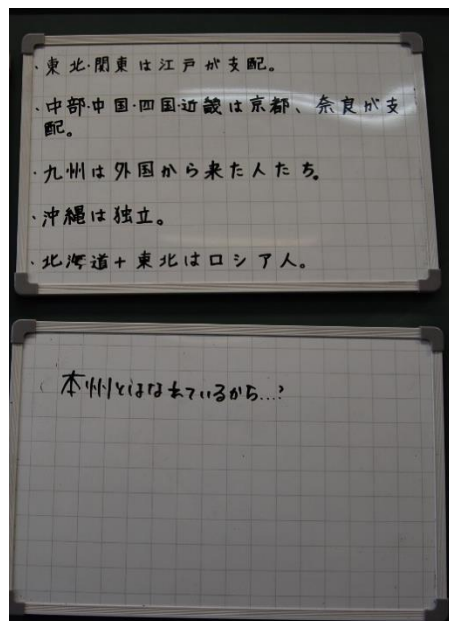 ・東北・関東は江戸が支配。
・中部・中国・四国・近畿は京都、奈良が支
配。
・九州は外国から来た人たち。
・沖縄は独立。
・北海道+東北はロシア人。
本州とはなれているから…?